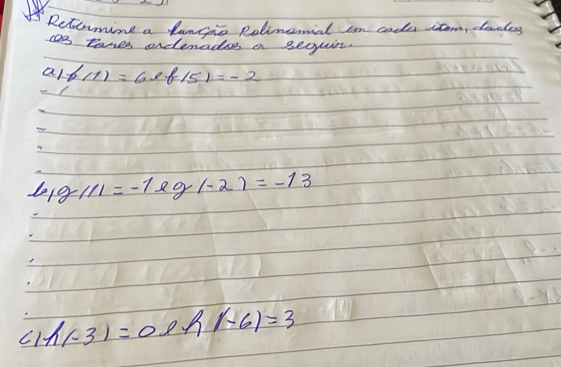 Determine a função Polinomial em cada item, dados
os Pares ordenados a seguir.
a) f(1) = 6 e f(5) = -2
b) g(1) = -1 e g(-2) = -13
c) h(-3) = 0 e h(-6) = 3